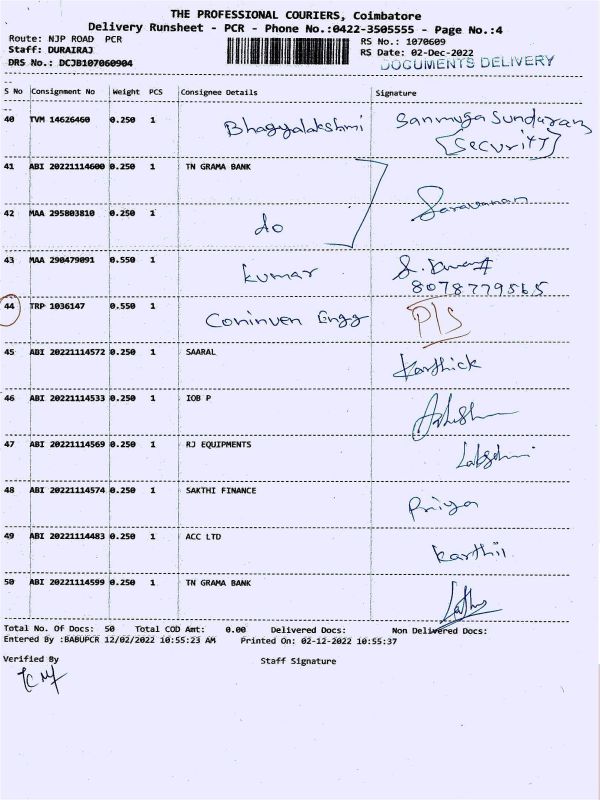 THE PROFESSIONAL COURIERS, Coimbatore
Delivery Runsheet - PCR - Phone No.:0422-3505555 - Page No.:4
Route: NJP ROAD PCR
RS No.: 1070609
Staff: DURAIRAJ
RS Date: 02-Dec-2022
DRS No.: DCJB107060904
DOCUMENTS DELIVERY
S No Consignment No Weight PCS Consignee Details Signature
40 TVM 14626460 0.250 1 Bhagyalakshmi Sanmuga Sundaram
(Security)
41 ABI 20221114600 0.250 1 TN GRAMA BANK
Saravanan
42 MAA 295803810 0.250 1 do
43 MAA 290479091 0.550 1 kumar
8078779565
44 TRP 1036147 0.550 1 Coninven Engg P/S
45 ABI 20221114572 0.250 1 SAARAL Karthick
46 ABI 20221114533 0.250 1 IOB P
47 ABI 20221114569 0.250 1 RJ EQUIPMENTS
48 ABI 20221114574 0.250 1 SAKTHI FINANCE Priya
49 ABI 20221114483 0.250 1 ACC LTD
50 ABI 20221114599 0.250 1 TN GRAMA BANK
Total No. Of Docs: 50 Total COD Amt: 0.00 Delivered Docs: Non Delivered Docs:
Entered By :BABUPCR 12/02/2022 10:55:23 AM Printed On: 02-12-2022 10:55:37
Verified By Staff Signature